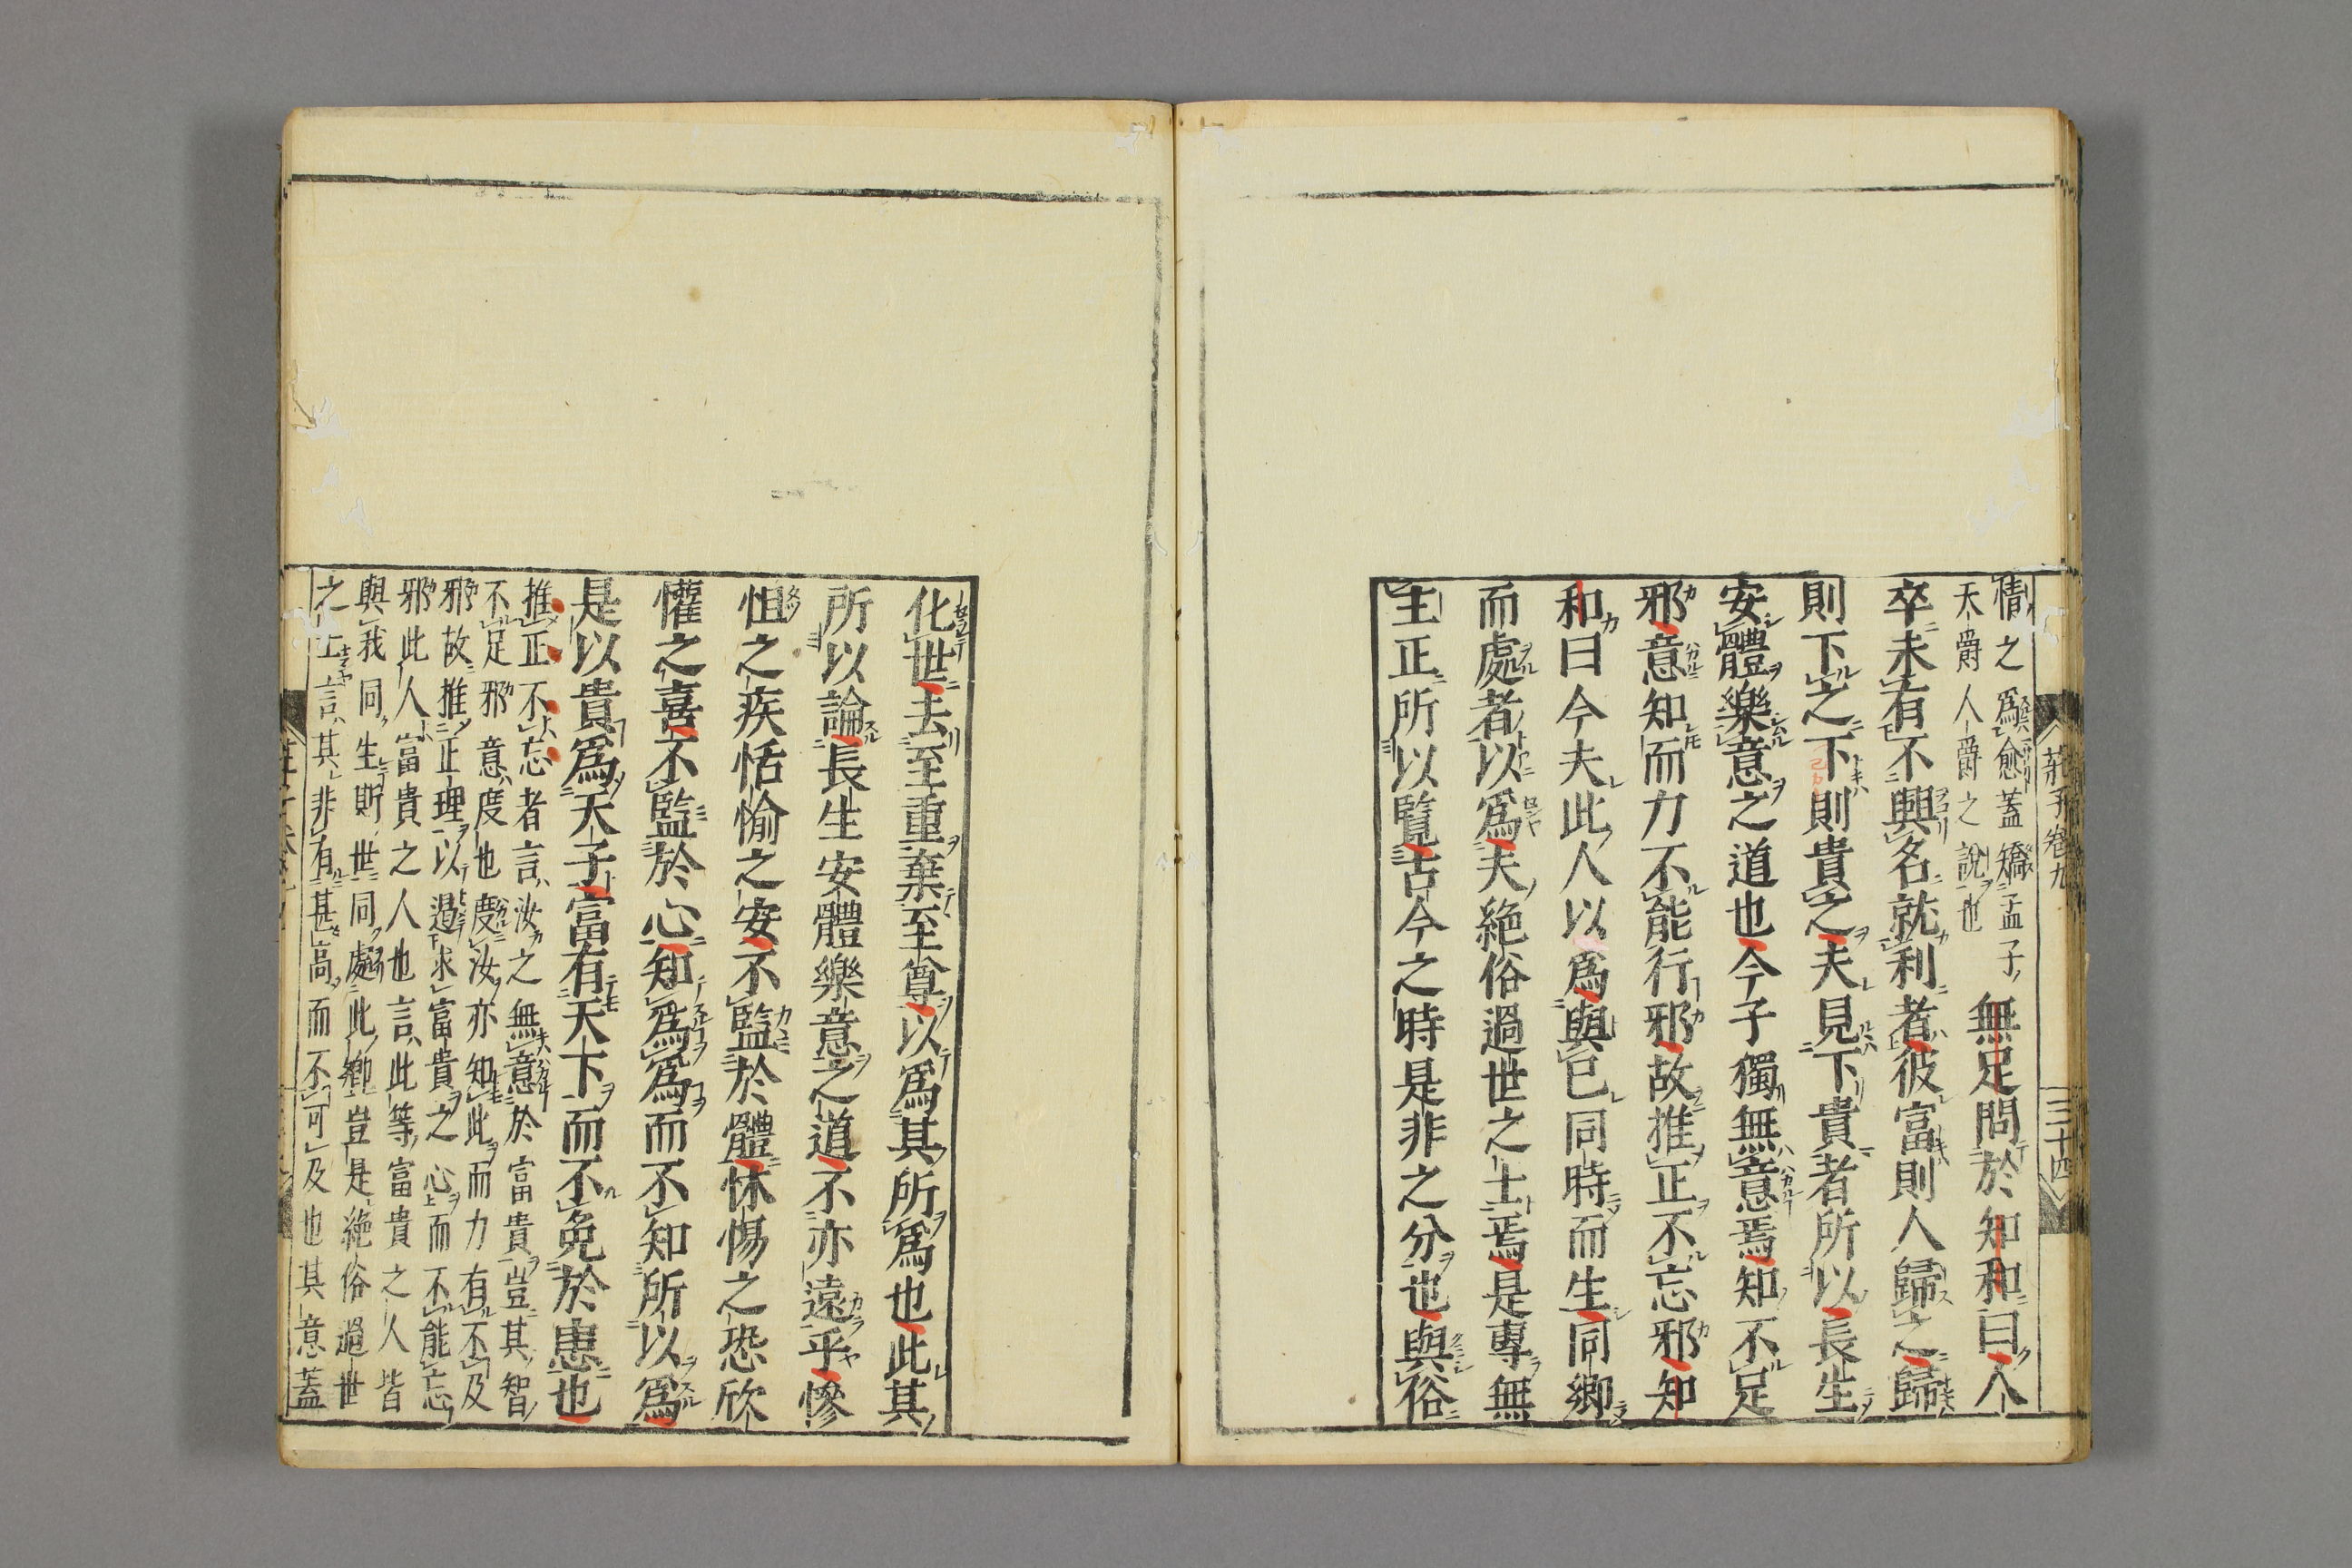 情之爲愈蓋矯孟子
天爵人爵之說也
無足問於知和曰人
卒未有不興名就利者彼富則人歸之歸
則下之下則貴之夫見下貴者所以長生
安體樂意之道也今子獨無意焉知不足
邪意知而力不能行邪故推正不忘邪知
和曰今夫此人以爲與已同時而生同鄉
而處者以爲夫絕俗過世之士焉是專無
主正所以覽古今之時是非之分也與俗
莊子卷九
三十四
化世去至重棄至尊以爲其所爲也此其
所以論長生安體樂意之道不亦遠乎慘
怛之疾恬愉之安不監於體怵惕之恐欣
懽之喜不監於心知爲爲而不知所以爲
是以貴爲天子富有天下而不免於患也
推正不忘者言汝之無意於富貴豈其智
不足邪意度也度汝亦知此而力有不及
邪故推正理以遏求富貴之心而不能忘
邪此人富貴之人也言此等富貴之人皆
與我同生於世同處此鄉豈是絕俗過世
之士言其非有甚高而不可及也其意蓋